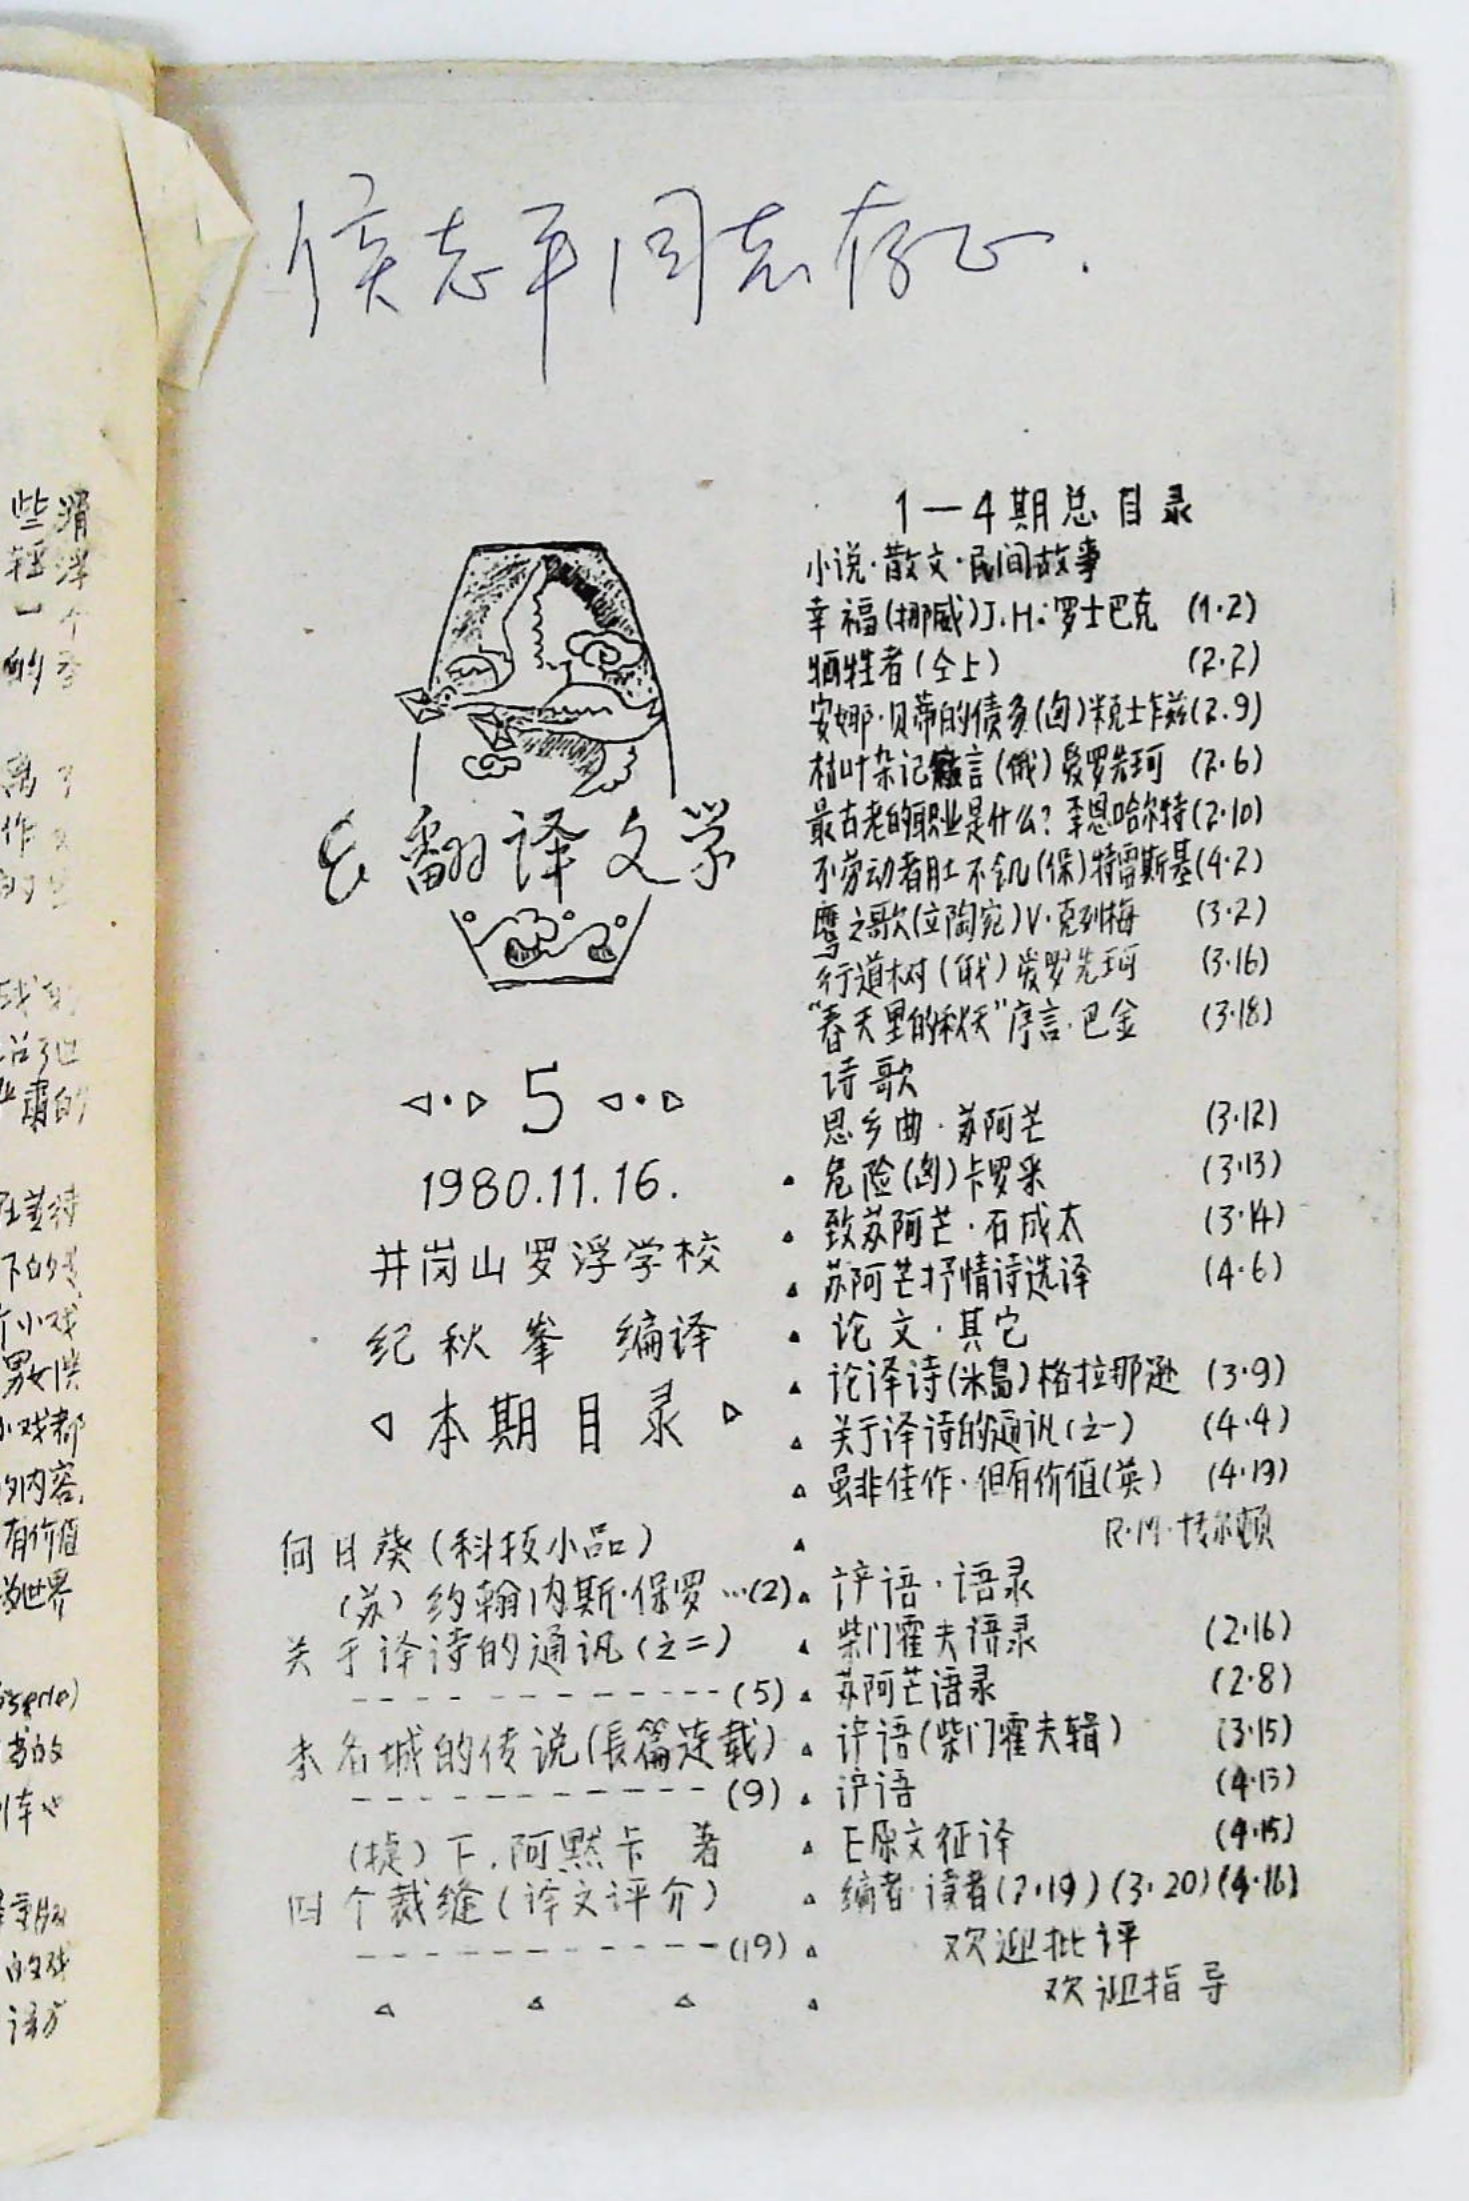 侯志平同志存正.
翻译文学
5
1980.11.16.
井岗山罗浮学校
纪秋峯 编译
本期目录
向日葵(科技小品)
(苏)约翰内斯·保罗…(2)
关于译诗的通讯(之二)
------------(5)
未名城的传说(長篇连载)
-----------(9)
(捷)丅.阿黙卡 著
四个裁缝(译文评介)
------------(19)
1—4期总目录
小说·散文·民间故事
幸福(挪威)J.H.罗士巴克 (1·2)
牺牲者(仝上) (2·2)
安娜·贝蒂的债务(匈)米克士卡兹(2.9)
枯叶杂记 言(俄)爱罗先珂 (2·6)
最古老的职业是什么?李恩哈尔特(2·10)
不劳动者肚不饥(保)特雷斯基(4·2)
鹰之歌(立陶宛)V·克列梅 (3·2)
行道树(俄)爱罗先珂 (3·16)
“春天里的秋天”序言·巴金 (3·18)
诗歌
思乡曲·苏阿芒 (3·12)
危险(匈)卡罗采 (3·13)
致苏阿芒·石成太 (3·14)
苏阿芒抒情诗选译 (4·6)
论文·其它
论译诗(氷島)格拉那逊 (3·9)
关于译诗的通讯(之一) (4·4)
虽非佳作·但有价值(英) (4·19)
谚语·语录
柴门霍夫语录 (2·16)
苏阿芒语录 (2·8)
谚语(柴门霍夫辑) (3·15)
谚语 (4·13)
E原文征译 (4·15)
编者·读者(2·19)(3·20)(4·16)
欢迎批评
欢迎指导